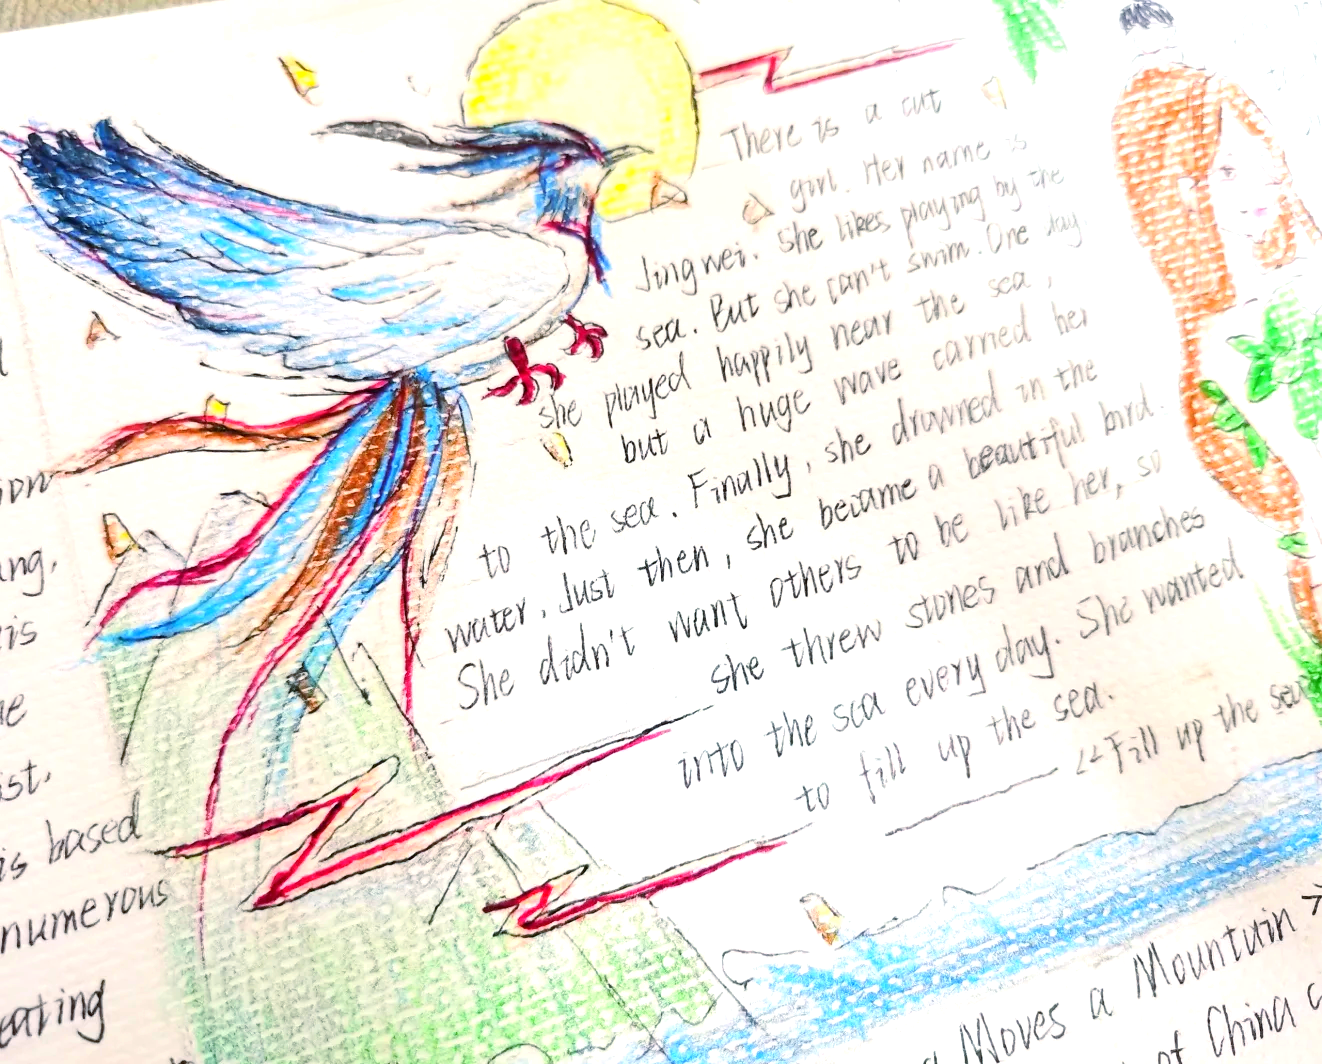 There is a cut
girl. Her name is
Jingwei. She likes playing by the
sea. But she can't swim. One day
she played happily near the sea,
but a huge wave carried her
to the sea. Finally, she drowned in the
water. Just then, she became a beautiful bird.
She didn't want others to be like her, so
she threw stones and branches
into the sea every day. She wanted
to fill up the sea.
——<<Fill up the sea
ang.
is based
numerous
eating
Moves a Mountain >
of China